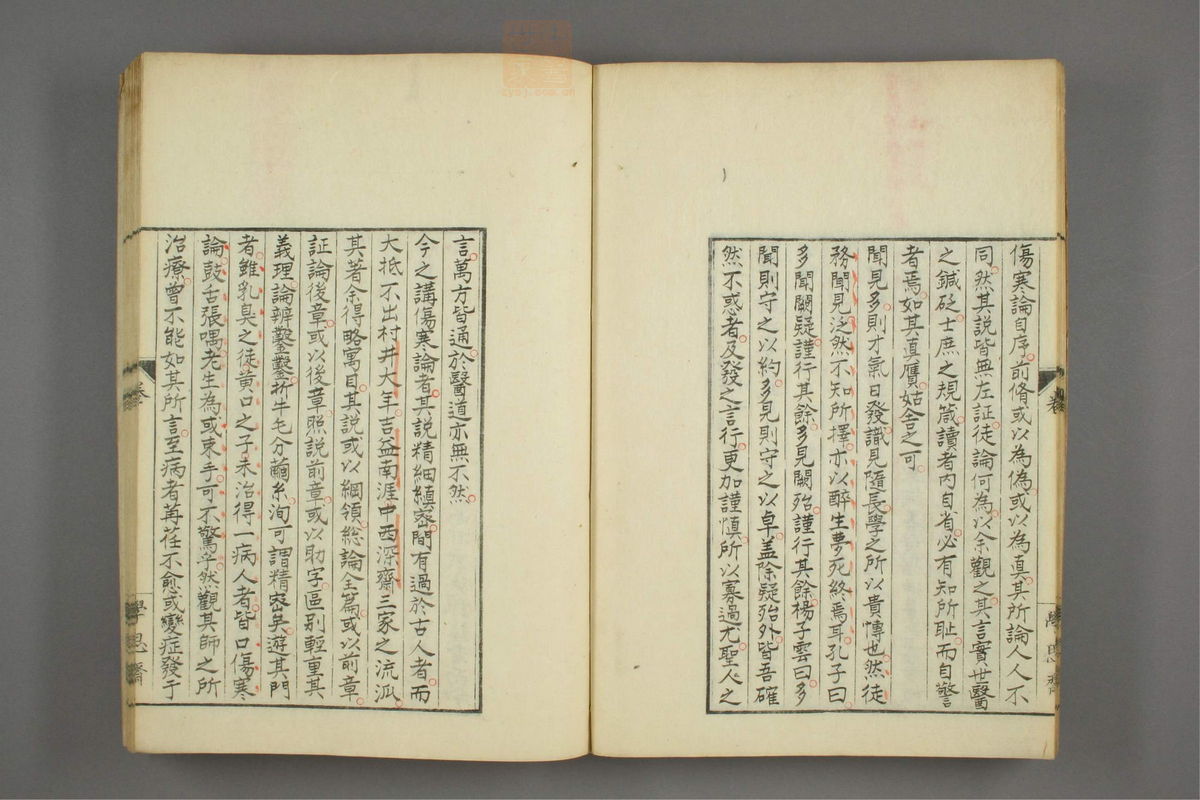 傷寒論自序前脩或以為偽或以為真其所論人人不
同然其説皆無左証徒論何為以余觀之其言實世醫
之鍼砭士庶之規箴讀者内自省必有知所耻而自警
者焉如其真贋姑舍之可
聞見多則才氣日發識見隨長學之所以貴博也然徒
務聞見泛然不知所擇亦以醉生夢死終焉耳孔子曰
多聞闕疑謹行其餘多見闕殆謹行其餘楊子雲曰多
聞則守之以約多見則守之以卓蓋除疑殆外皆吾確
然不惑者及發之言行更加謹慎所以寡過尤聖人之
言萬方皆通於醫道亦無不然
今之講傷寒論者其説精細縝密間有過於古人者而
大抵不出村井大年吉益南涯中西深齋三家之流派
其著余得略寓目其説或以綱領総論全篇或以前章
証論後章或以後章照説前章或以助字區别輕重其
義理論辨鑿鑿析牛毛分繭糸洵可謂精密矣遊其門
者雖乳臭之徒黄口之子未治得一病人者皆口傷寒
論鼓舌張喁老生為或束手可不驚乎然觀其師之所
治療曾不能如其所言至病者荏苒不愈或變症發于
卷
學思齋